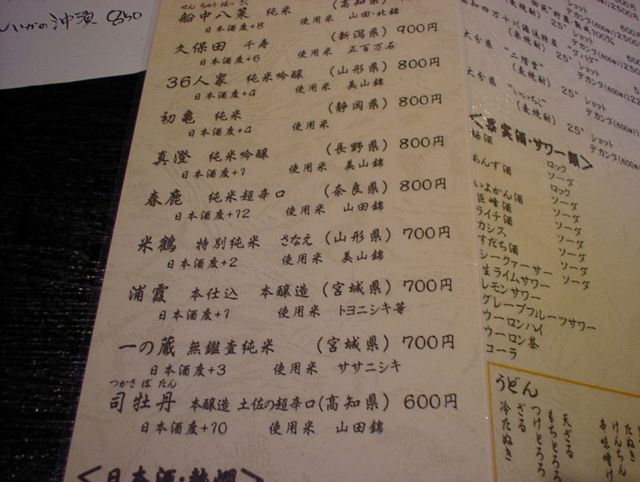 いかの沖漬 850
せんちゅうはっさく
船中八策 純米 (高知県) 900円
日本酒度+8 使用米 山田・北錦
久保田 千寿 (新潟県) 900円
日本酒度+6 使用米 五百万石
36人衆 純米吟醸 (山形県) 800円
日本酒度+4 使用米 美山錦
初亀 純米 (静岡県) 800円
日本酒度+4 使用米
真澄 純米吟醸 (長野県) 800円
日本酒度+1 使用米 美山錦
春鹿 純米超辛口 (奈良県) 800円
日本酒度+12 使用米 山田錦
米鶴 特別純米 さなえ (山形県) 700円
日本酒度+2 使用米 美山錦
浦霞 本仕込 本醸造 (宮城県) 700円
日本酒度+1 使用米 トヨニシキ等
一の蔵 無鑑査純米 (宮城県) 700円
日本酒度+3 使用米 ササニシキ
つかさぼたん
司牡丹 本醸造 土佐の超辛口 (高知県) 600円
日本酒度+10 使用米 山田錦
<日本酒・熱燗>
大分県 "二階堂" 25° ショット
(麦焼酎) デカンタ(600㎖)
大分県 "いいちこ" 25° ショット
(麦焼酎) デカンタ(600㎖)
<果実酒・サワー類>
梅酒 ロック
ソーダ
あんず酒 ロック
ソーダ
いよかん酒 ソーダ
巨峰酒 ソーダ
ライチ酒 ソーダ
カシス ソーダ
すだち酒 ソーダ
シークァーサー ソーダ
生ライムサワー
レモンサワー
グレープフルーツサワー
ウーロンハイ
ウーロン茶
コーラ
うどん
たぬき
けんちん
辛味噌
天ざる
もちとろろ
つけとろろ
ざる
冷たぬき